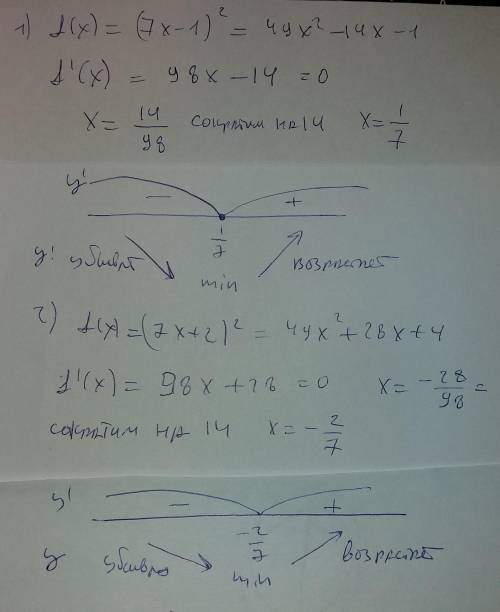 1) f(x) = (7x-1)² = 49x² - 14x - 1
f'(x) = 98x - 14 = 0
x = 14/98 сократим на 14 x = 1/7
y' - +
1/7
y' убывает min возрастает
2) f(x) = (7x+2)² = 49x² + 28x + 4
f'(x) = 98x + 28 = 0 x = -28/98 =
сократим на 14 x = -2/7
y' - +
-2/7
y убывает min возрастает